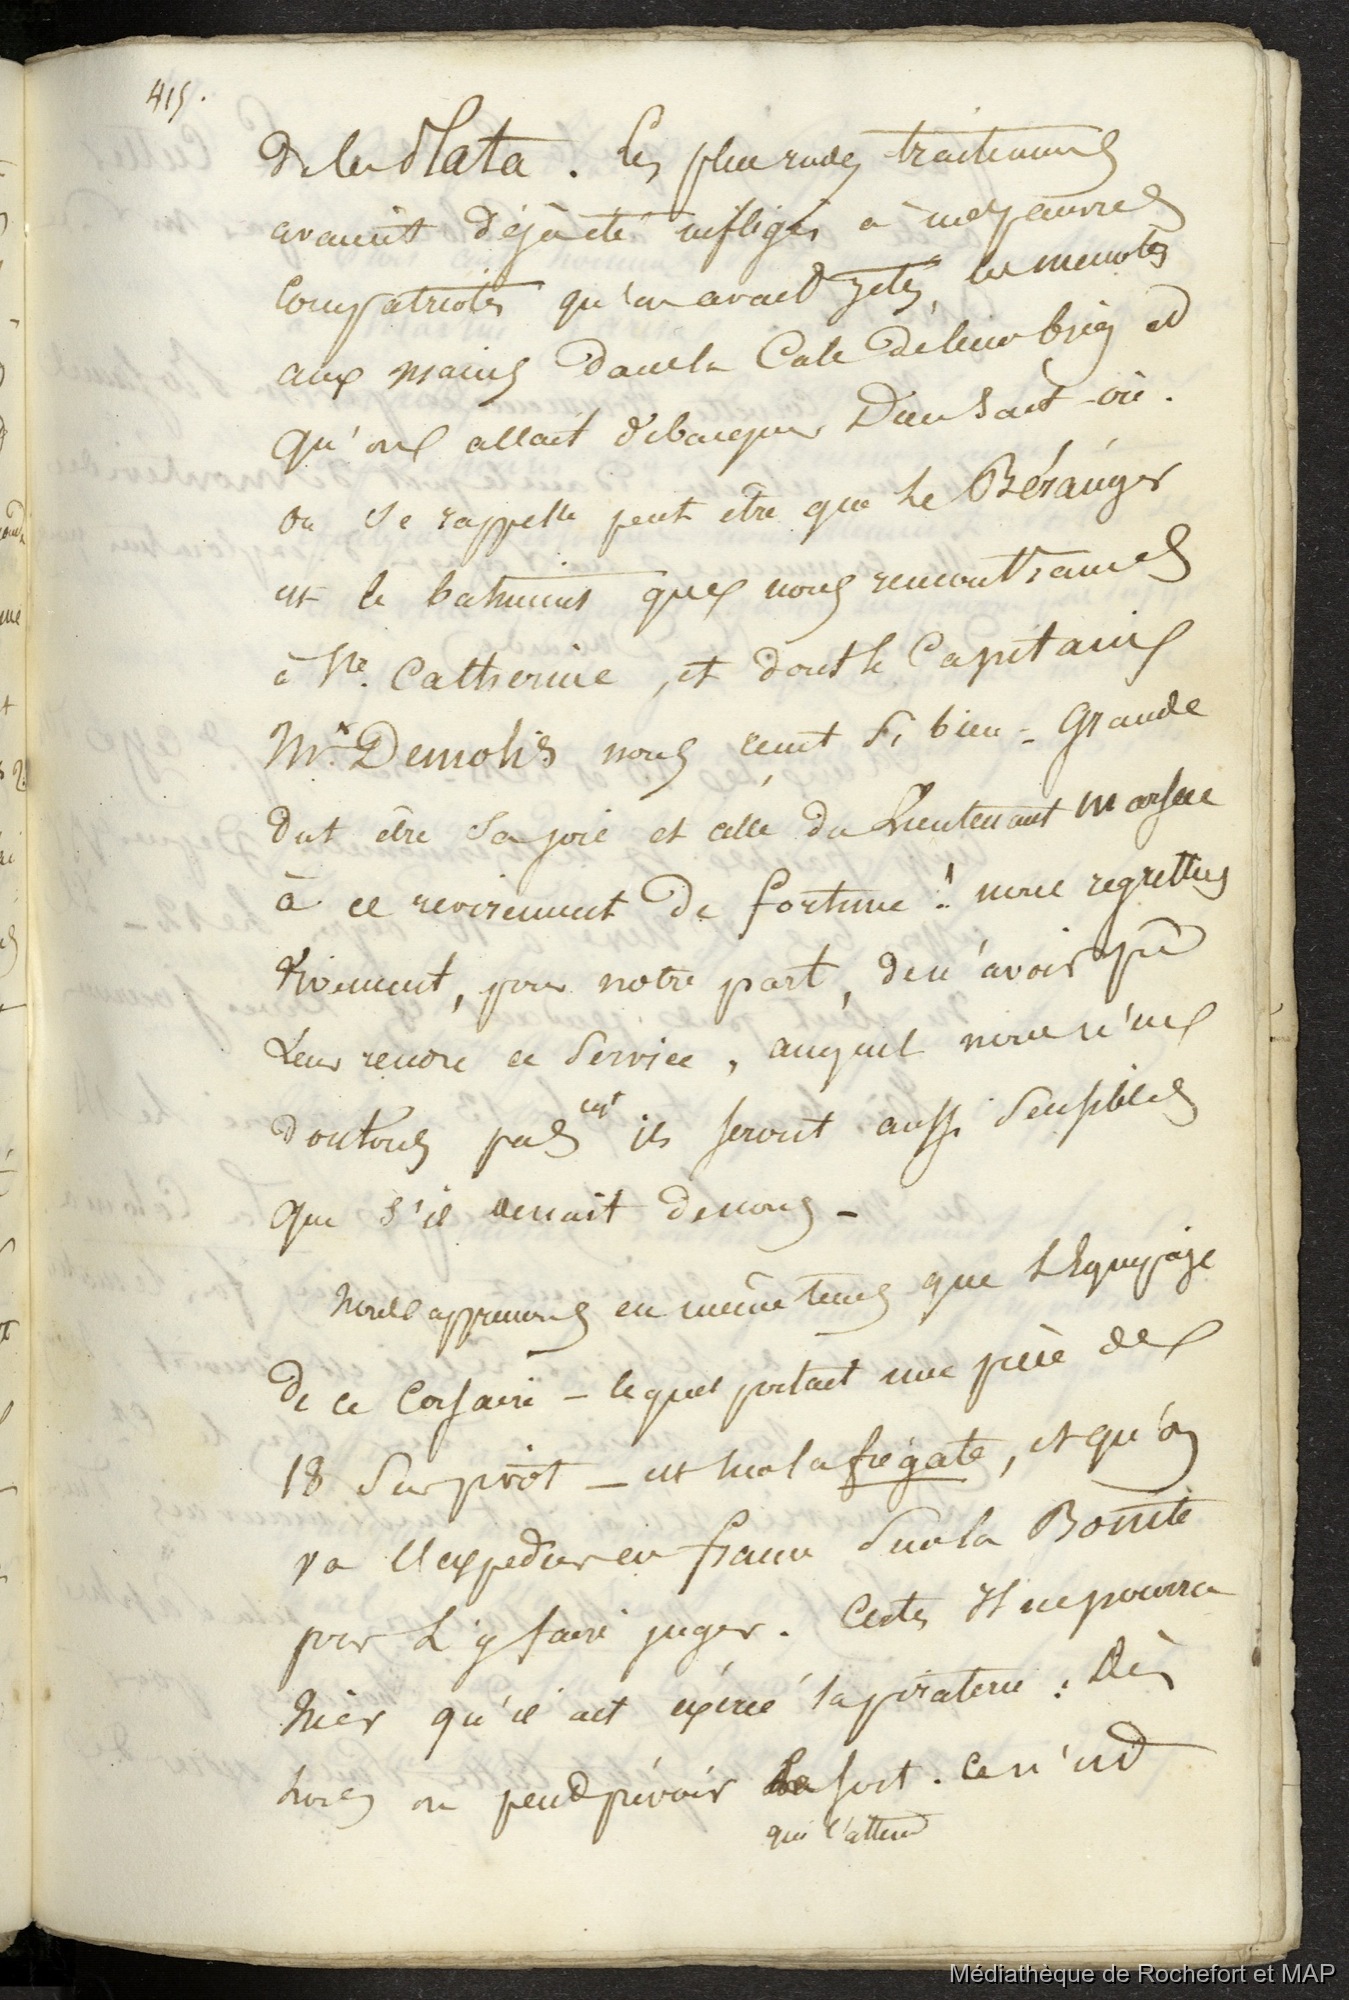 415.
de la Plata. Les plus rudes traitemens
avaient déjà été infligés à mes pauvres
Compatriotes qu'on avait jetés, les menottes
aux mains dans la Cale de leur brig et
qu'on allait débarquer Dieu sait où.
On se rappelle peut être que le Béranger
est le batiment que nous rencontrames
à Ste. Catherine, et dont le Capitaine
Mr. Demolis nous reçut si bien - Grande
dut être sa joie et celle du Lieutenant
à ce revirement de fortune! nous regrettons
vivement, pour notre part, de n'avoir pû
leur rendre ce service, auquel nous n'en
doutons pas ils seront aussi sensibles
que s'il venait de nous -
Nous apprenons en même tems que l'Equipage
de ce Corsaire - lequel portait une pièce de
18 sur pivot - est sur la frégate, et qu'on
va l'expédier en france sur la Bonite
pour l'y faire juger. Certes il ne pourra
nier qu'il ait exercé la piraterie; Dès
lors on peut prévoir le sort. Ce n'est
qui l'attend
Médiathèque de Rochefort et MAP